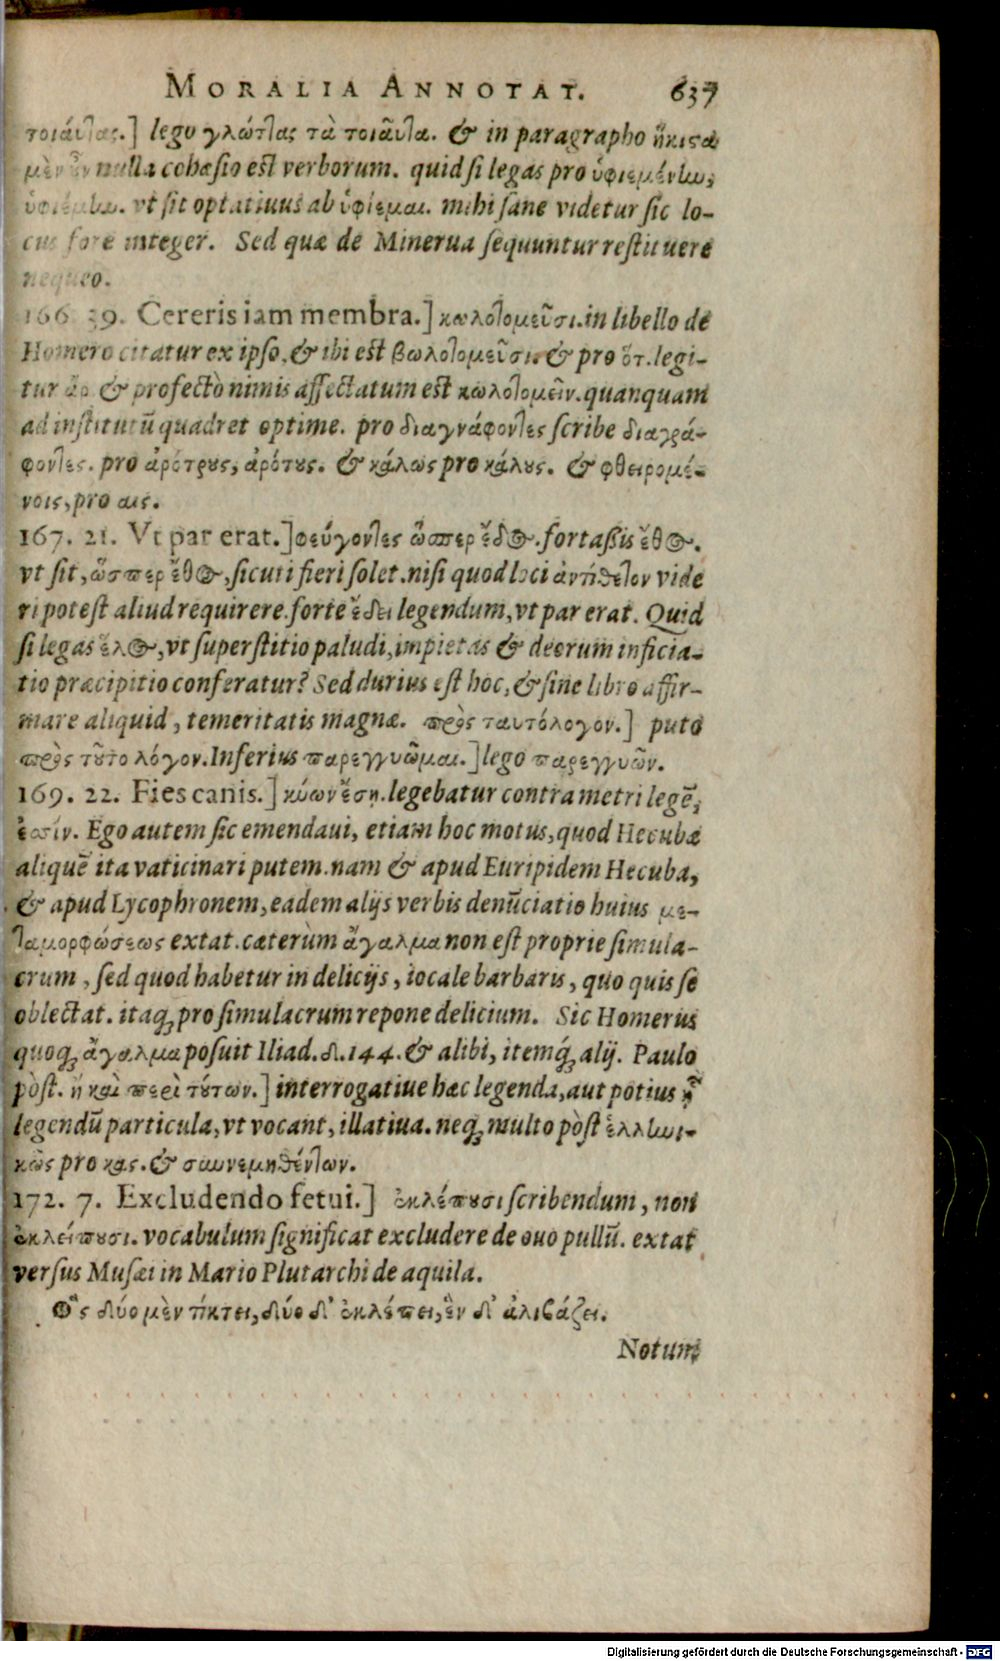 MORALIA ANNOTAT. 637
τοιάυτας.] lego γλώττας τὰ τοιαῦτα. & in paragrapho ἥκιστα
μὲν ἦν nulla cohæsio est verborum. quid si legas pro ὑφιεμένω,
ὑφιέμω. vt sit optatiuus ab ὑφίεμαι. mihi sane videtur sic lo-
cus fore integer. Sed quæ de Minerua sequuntur restituere
nequeo.
166. 39. Cereris iam membra.] κωλοτομεῦσι. in libello de
Homero citatur ex ipso, & ibi est βωλοτομεῦσι. & pro ὅτ. legi-
tur & profectò nimis affectatum est κωλοτομεῖν. quanquam
ad institutū quadret optime. pro διαγνάφοντες scribe διαγρά-
φοντες. pro ἀρότρους, ἀρότους. & κάλως pro κάλους. & φθειρομέ-
νοις, pro αις.
167. 21. Vt par erat.] φεύγοντες ὥσπερ ἕδος. fortaßis ἔθος.
vt sit, ὥσπερ ἔθος, sicuti fieri solet. nisi quod loci ἀντίθετον vide
ri potest aliud requirere. forte ἔδει legendum, vt par erat. Quid
si legas ἕλος, vt superstitio paludi, impietas & deorum inficia-
tio præcipitio conferatur? Sed durius est hoc, & sine libro affir-
mare aliquid, temeritatis magnæ. πρὸς ταυτόλογον.] puto
πρὸς τοῦτο λόγον. Inferius παρεγγυῶμαι.] lego παρεγγυῶν.
169. 22. Fies canis.] κύων ἔσῃ. legebatur contra metri legē,
ἐσίν. Ego autem sic emendaui, etiam hoc motus, quod Hecubæ
aliquē ita vaticinari putem. nam & apud Euripidem Hecuba,
& apud Lycophronem, eadem alijs verbis denūciatio huius με-
ταμορφώσεως extat. cæterùm ἄγαλμα non est proprie simula-
crum, sed quod habetur in delicijs, iocale barbaris, quo quis se
oblectat. itaq; pro simulacrum repone delicium. Sic Homerus
quoq; ἄγαλμα posuit Iliad. δ. 144. & alibi, itemq́; alij. Paulo
pòst. ἢ καὶ περὶ τούτων.] interrogatiue hæc legenda, aut potius ἦ
legendū particula, vt vocant, illatiua. neq; multo pòst ἑλληνι-
κῶς pro κας. & συννεμηθέντων.
172. 7. Excludendo fetui.] ἐκλέπουσι scribendum, non
ἐκλείπουσι. vocabulum significat excludere de ouo pullū. extat
versus Musæi in Mario Plutarchi de aquila.
Ὃς δύο μὲν τίκτει, δύο δ' ἐκλέπει, ἓν δ' ἀλιβάζει.
Notum
Digitalisierung gefördert durch die Deutsche Forschungsgemeinschaft · DFG